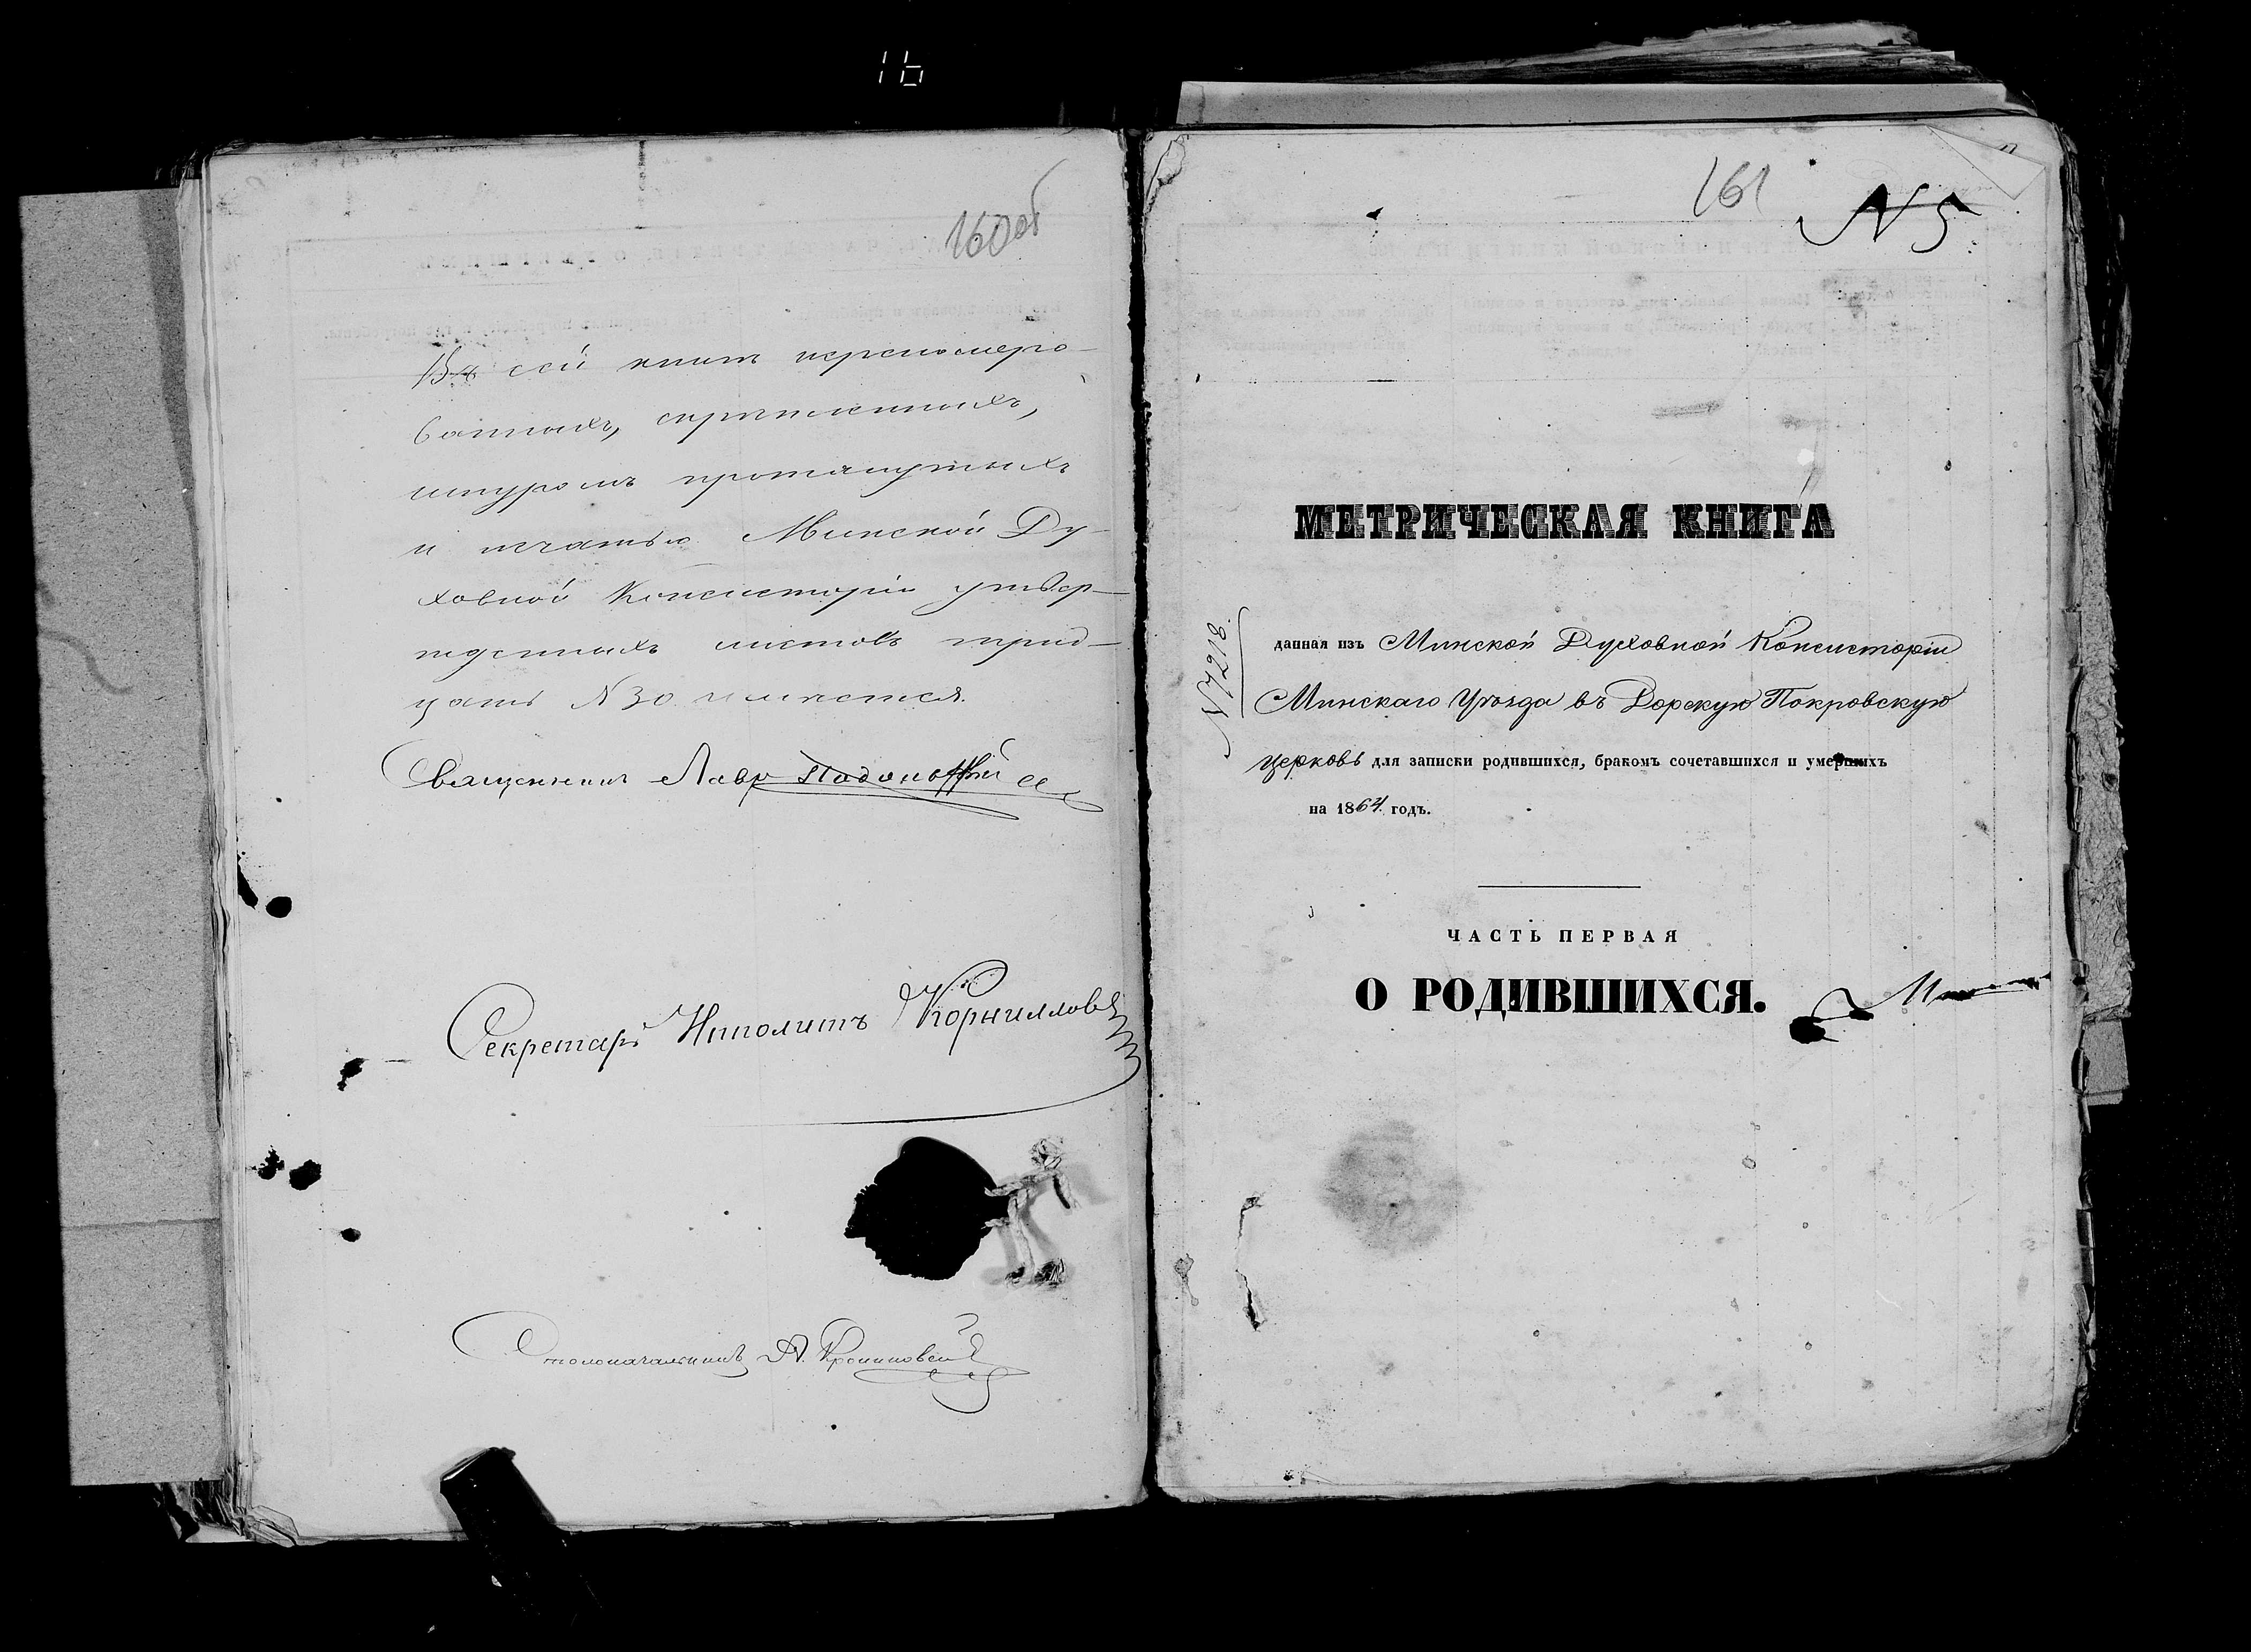 16
160 об
Въ сей книгѣ перенумеро-
ванныхъ, скрѣпленныхъ,
шнуромъ протянутыхъ
и печатью Минской Ду-
ховной Консисторіи утвер-
жденныхъ листовъ трид-
цать N 30 имѣется.
Священникъ Лавр
Секретарь Иполитъ Корниловъ
Столоначальникъ А.
161
N 5
МЕТРИЧЕСКАЯ КНИГА
N 7218.
данная изъ Минской Духовной Консисторіи
Минскаго Уѣзда въ Дорскую Покровскую
церковь для записки родившихся, бракомъ сочетавшихся и умершихъ
на 1864 годъ.
ЧАСТЬ ПЕРВАЯ
О РОДИВШИХСЯ.